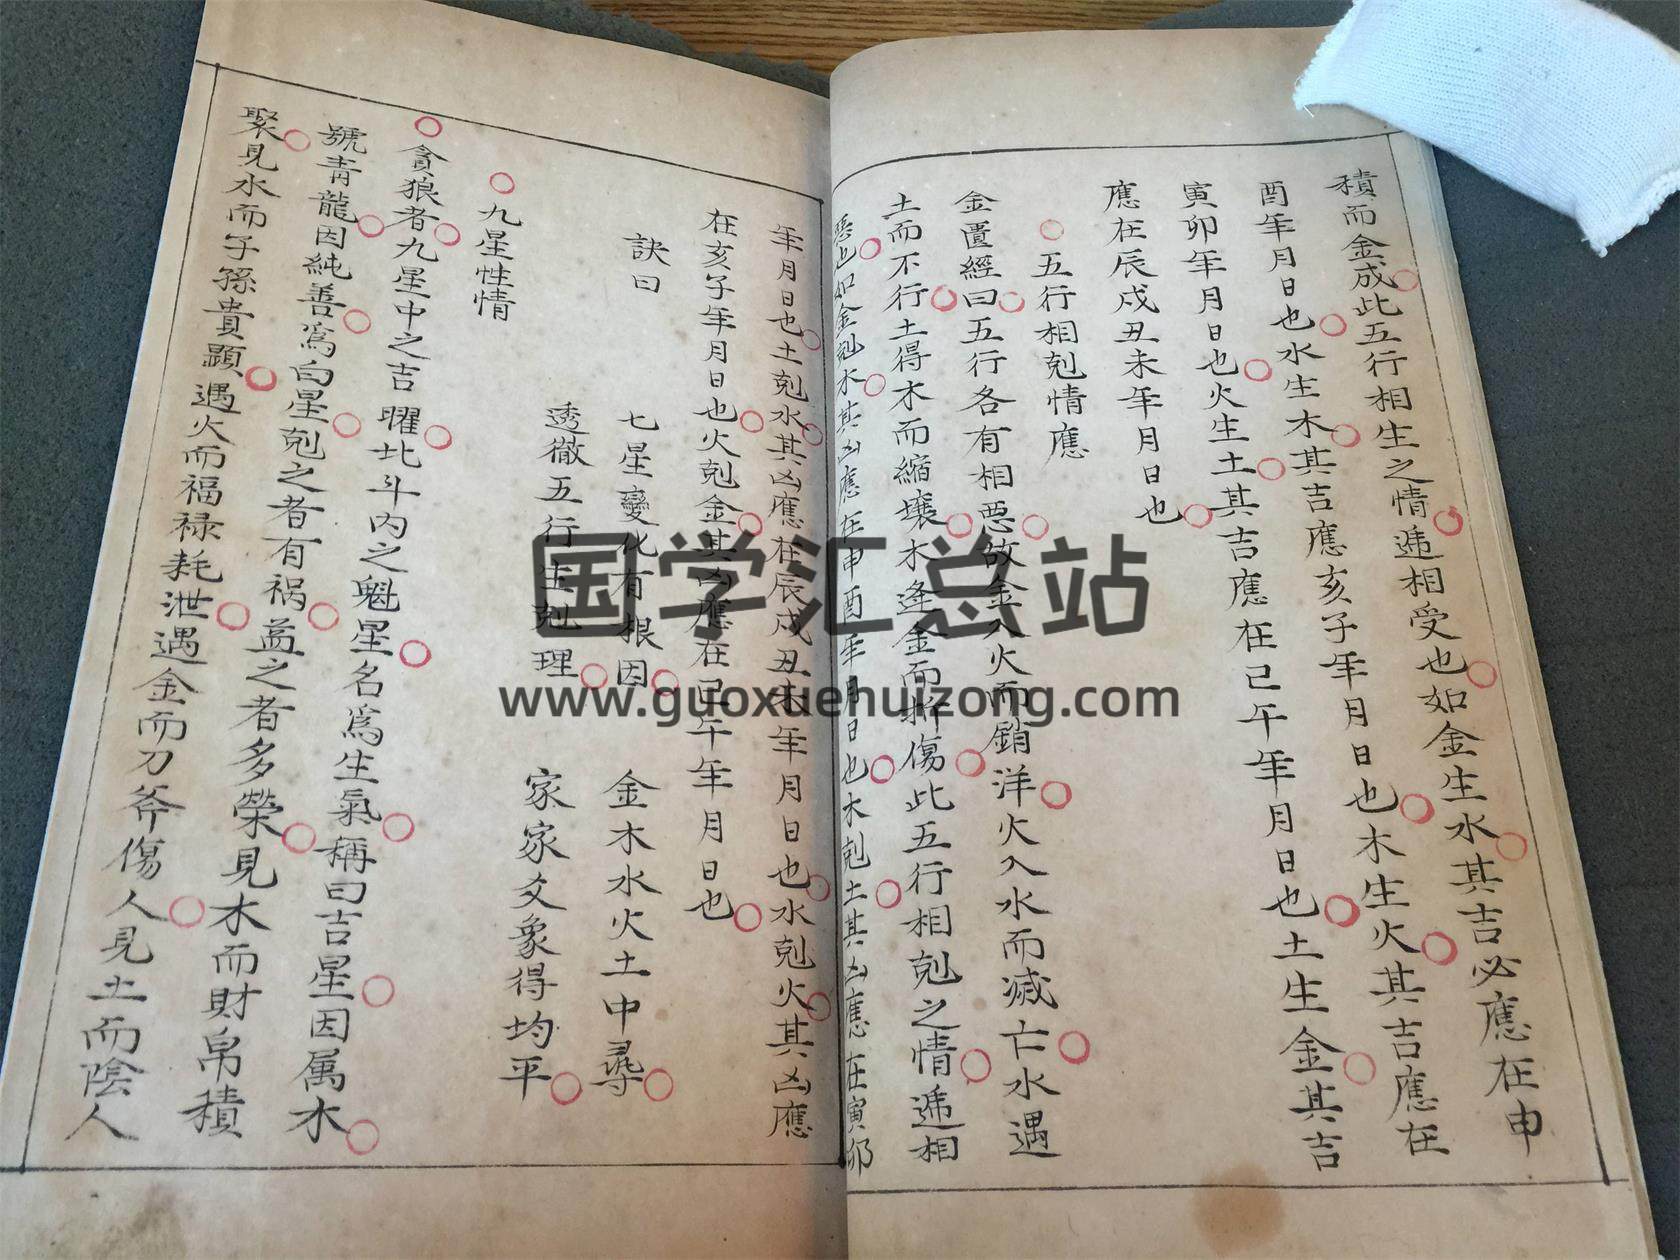 積而金成此五行相生之情遞相受也如金生水其吉必應在申
酉年月日也水生木其吉應亥子年月日也木生火其吉應在
寅卯年月日也火生土其吉應在巳午年月日也土生金其吉
應在辰戌丑未年月日也
五行相剋情應
金匱經曰五行各有相惡故金入火而銷洋火入水而滅亡水遇
土而不行土得木而縮壤木逢金而折傷此五行相剋之情遞相
惡也如金剋木其凶應在申酉年月日也木剋土其凶應在寅卯
年月日也土剋水其凶應在辰戌丑未年月日也水剋火其凶應
在亥子年月日也火剋金其凶應在巳午年月日也
訣曰
七星變化有根因 金木水火土中尋
透徹五行生剋理 家家爻象得均平
九星性情
貪狼者九星中之吉曜北斗内之魁星名爲生氣稱曰吉星因属木
號青龍因純善爲白星剋之者有禍益之者多榮見木而財帛積
聚見水而子孫貴顯遇火而福禄耗泄遇金而刀斧傷人見土而陰人
国学汇总站
www.guoxuehuizong.com